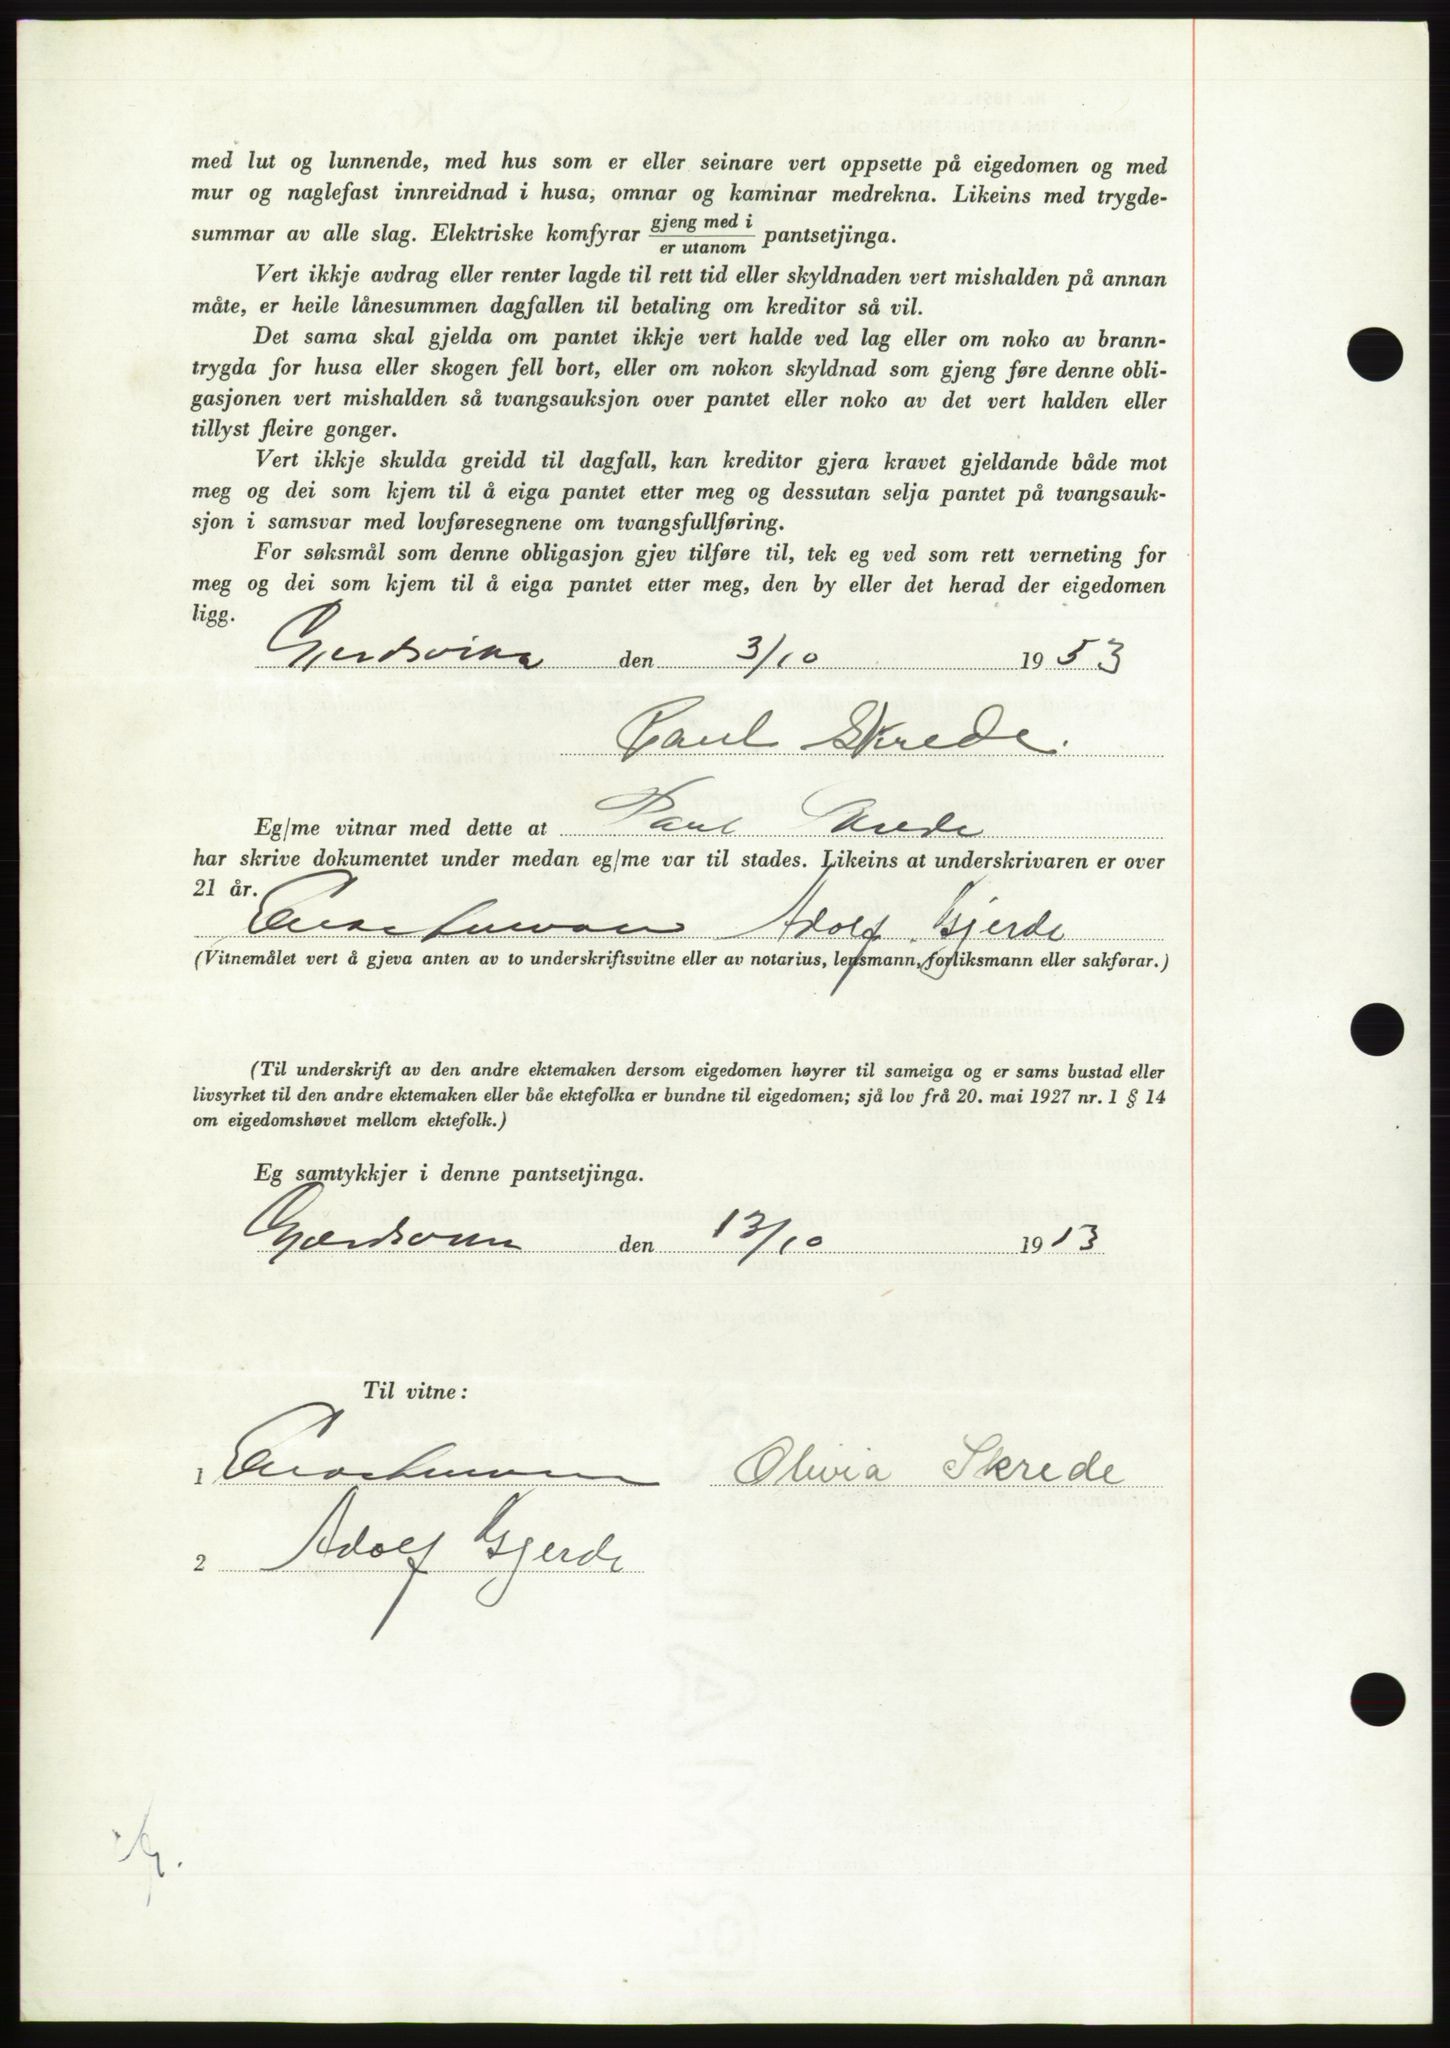 med lut og lunnende, med hus som er eller seinare vert oppsette på eigedomen og med
mur og naglefast innreidnad i husa, omnar og kaminar medrekna. Likeins med trygde-
summar av alle slag. Elektriske komfyrar gjeng med i / er utanom pantsetjinga.
Vert ikkje avdrag eller renter lagde til rett tid eller skyldnaden vert mishalden på annan
måte, er heile lånesummen dagfallen til betaling om kreditor så vil.
Det sama skal gjelda om pantet ikkje vert halde ved lag eller om noko av brann-
trygda for husa eller skogen fell bort, eller om nokon skyldnad som gjeng føre denne obli-
gasjonen vert mishalden så tvangsauksjon over pantet eller noko av det vert halden eller
tillyst fleire gonger.
Vert ikkje skulda greidd til dagfall, kan kreditor gjera kravet gjeldande både mot
meg og dei som kjem til å eiga pantet etter meg og dessutan selja pantet på tvangsauk-
sjon i samsvar med lovføresegnene om tvangsfullføring.
For søksmål som denne obligasjon gjev tilføre til, tek eg ved som rett verneting for
meg og dei som kjem til å eiga pantet etter meg, den by eller det herad der eigedomen
ligg.
Gjerdsvika den 3/10 1953
Paul Skrede.
Eg/me vitnar med dette at Paul Skrede
har skrive dokumentet under medan eg/me var til stades. Likeins at underskrivaren er over
21 år.
Adolf Gjerde
(Vitnemålet vert å gjeva anten av to underskriftsvitne eller av notarius, lensmann, forliksmann eller sakførar.)
(Til underskrift av den andre ektemaken dersom eigedomen høyrer til sameiga og er sams bustad eller
livsyrket til den andre ektemaken eller båe ektefolka er bundne til eigedomen; sjå lov frå 20. mai 1927 nr. 1 § 14
om eigedomshøvet mellom ektefolk.)
Eg samtykkjer i denne pantsetjinga.
den 13/10 1913
Til vitne:
1 Olivia Skrede
2 Adolf Gjerde